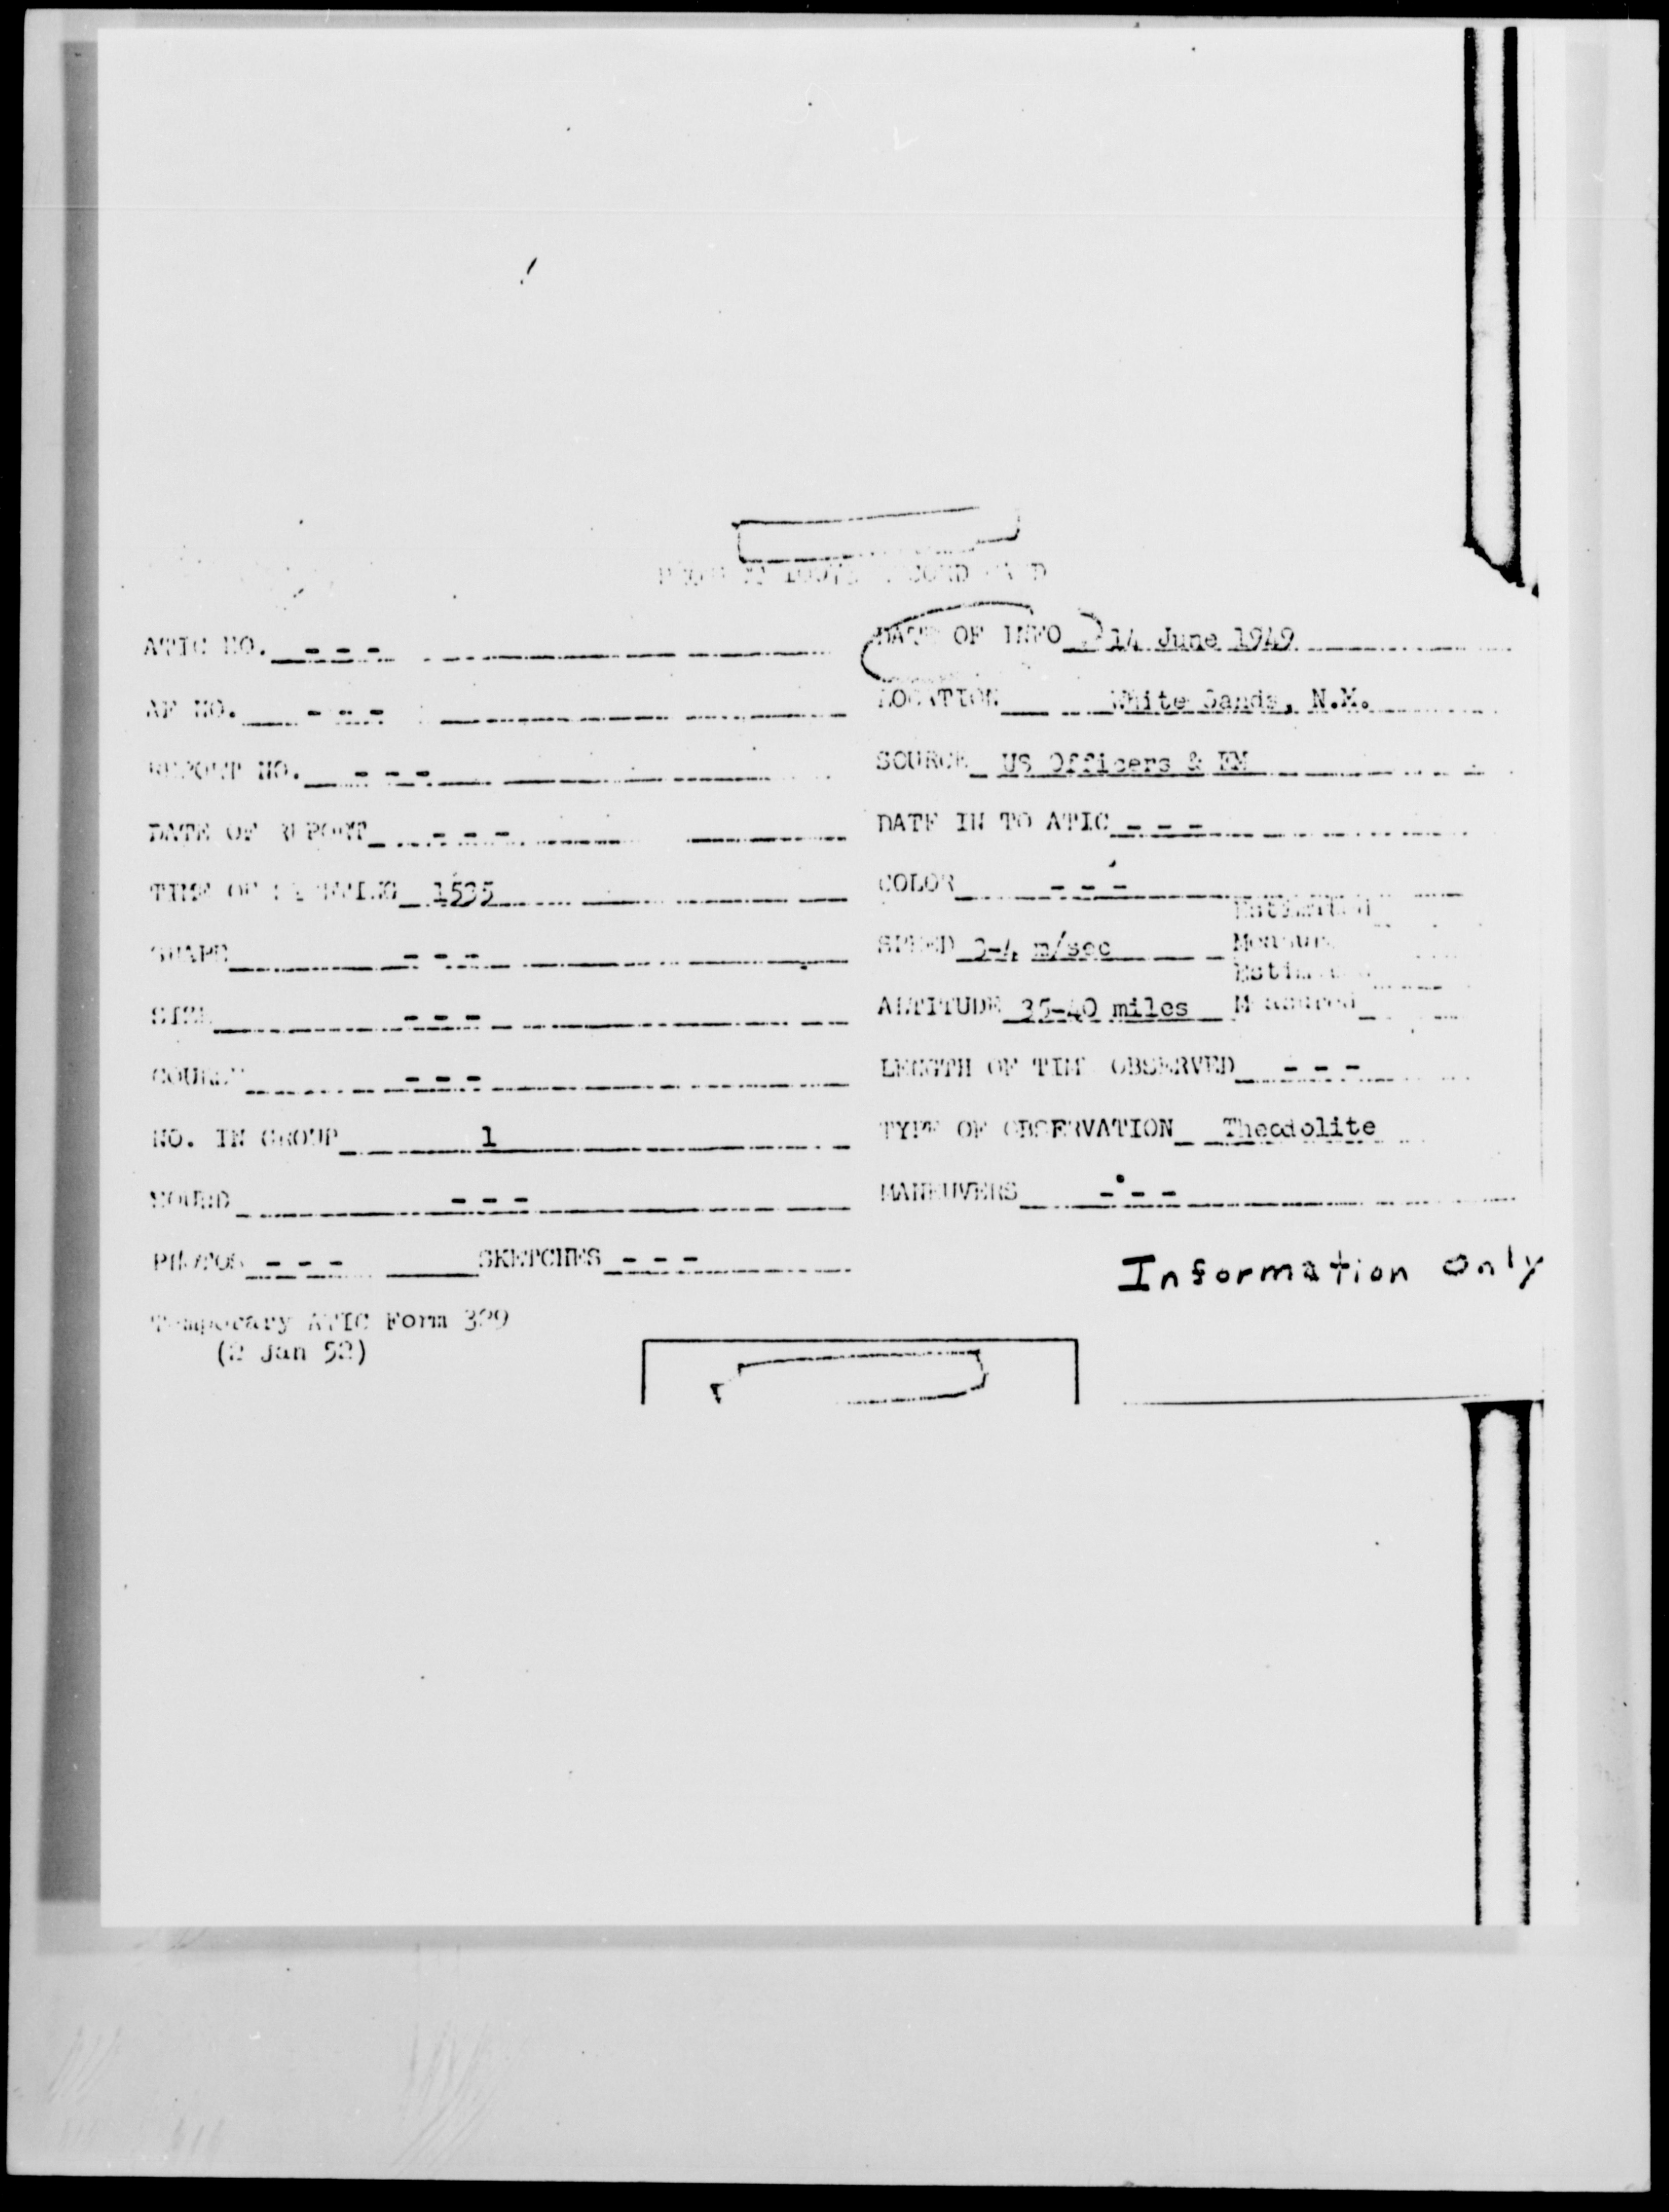 PROJECT 10073 RECORD CARD
ATIC NO. - - -
DATE OF INFO 14 June 1949
AF NO. - - -
LOCATION White Sands, N.M.
REPORT NO. - - -
SOURCE US Officers & EM
DATE OF REPORT - - -
DATE IN TO ATIC - - -
TIME OF SIGHTING 1535
COLOR - - -
SHAPE - - -
SPEED 3-4 m/sec
Estimated
Measured
SIZE - - -
ALTITUDE 35-40 miles
Estimated
Measured
COURSE - - -
LENGTH OF TIME OBSERVED - - -
NO. IN GROUP 1
TYPE OF OBSERVATION Theodolite
SOUND - - -
MANEUVERS - - -
PHOTOS - - - SKETCHES - - -
Information Only
Temporary ATIC Form 329
(2 Jan 52)